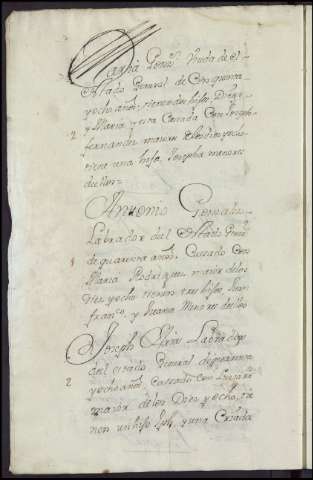 Maria Viuda de el
Estado General de Cinquenta
y ocho años, tiene dos hijos, Diego
y Maria y esta Casada Con Joseph
2 fernandez maior de los diez y ocho
tiene una hija Josepha menores
Antonio Gonzalez
Labrador del Estado Genl
1 de quarenta años, Cassado Con
Maria Rodriguez maior de los
Diez y ocho tienen tres hijos
franco, y Maria Menores de los
Joseph Labrador
del estado General de quarenta
2 y ocho años, Cassado Con
maior de los Diez y ocho, tie
nen un hijo y una Criada